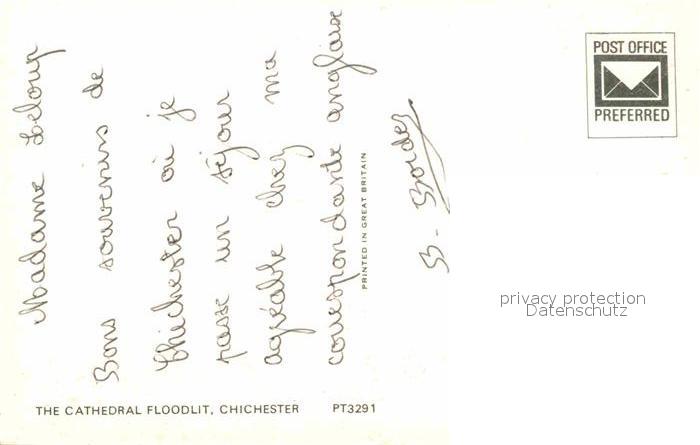 Madame Leloup
Bons souvenirs de
Chichester où je
passe un séjour
agréable chez ma
correspondante anglaise
B. Bordez
PRINTED IN GREAT BRITAIN
POST OFFICE
PREFERRED
privacy protection
Datenschutz
THE CATHEDRAL FLOODLIT, CHICHESTER PT3291